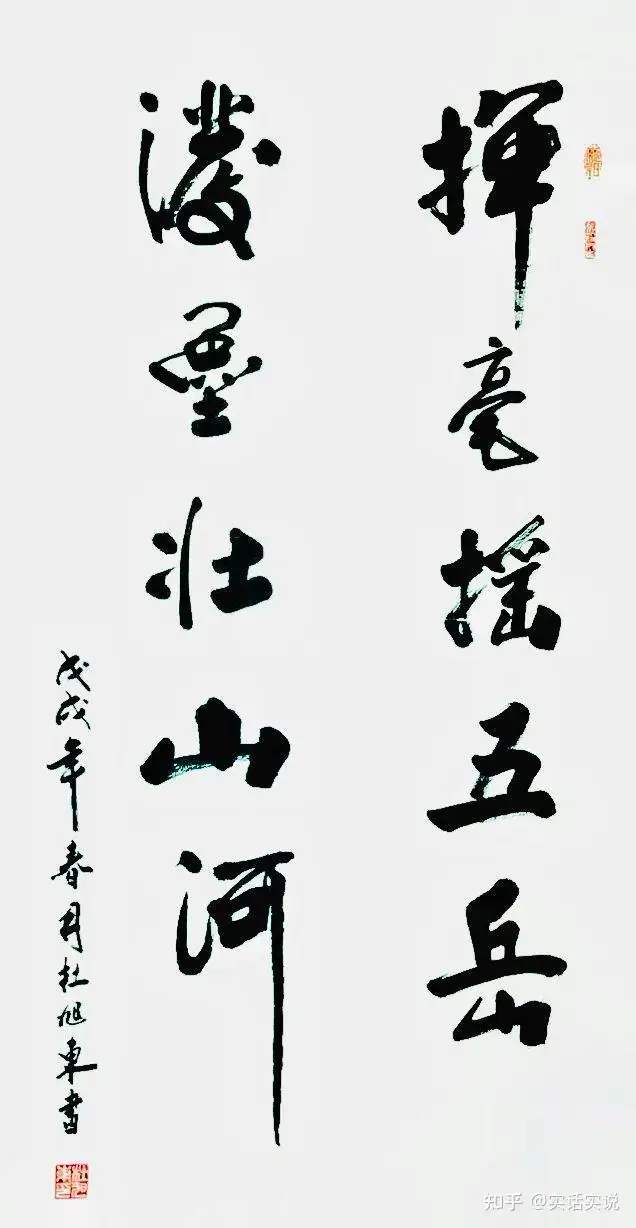 揮毫摇五岳
潑墨壮山河
戊戌年春月杜旭東書
知乎 @实话实说